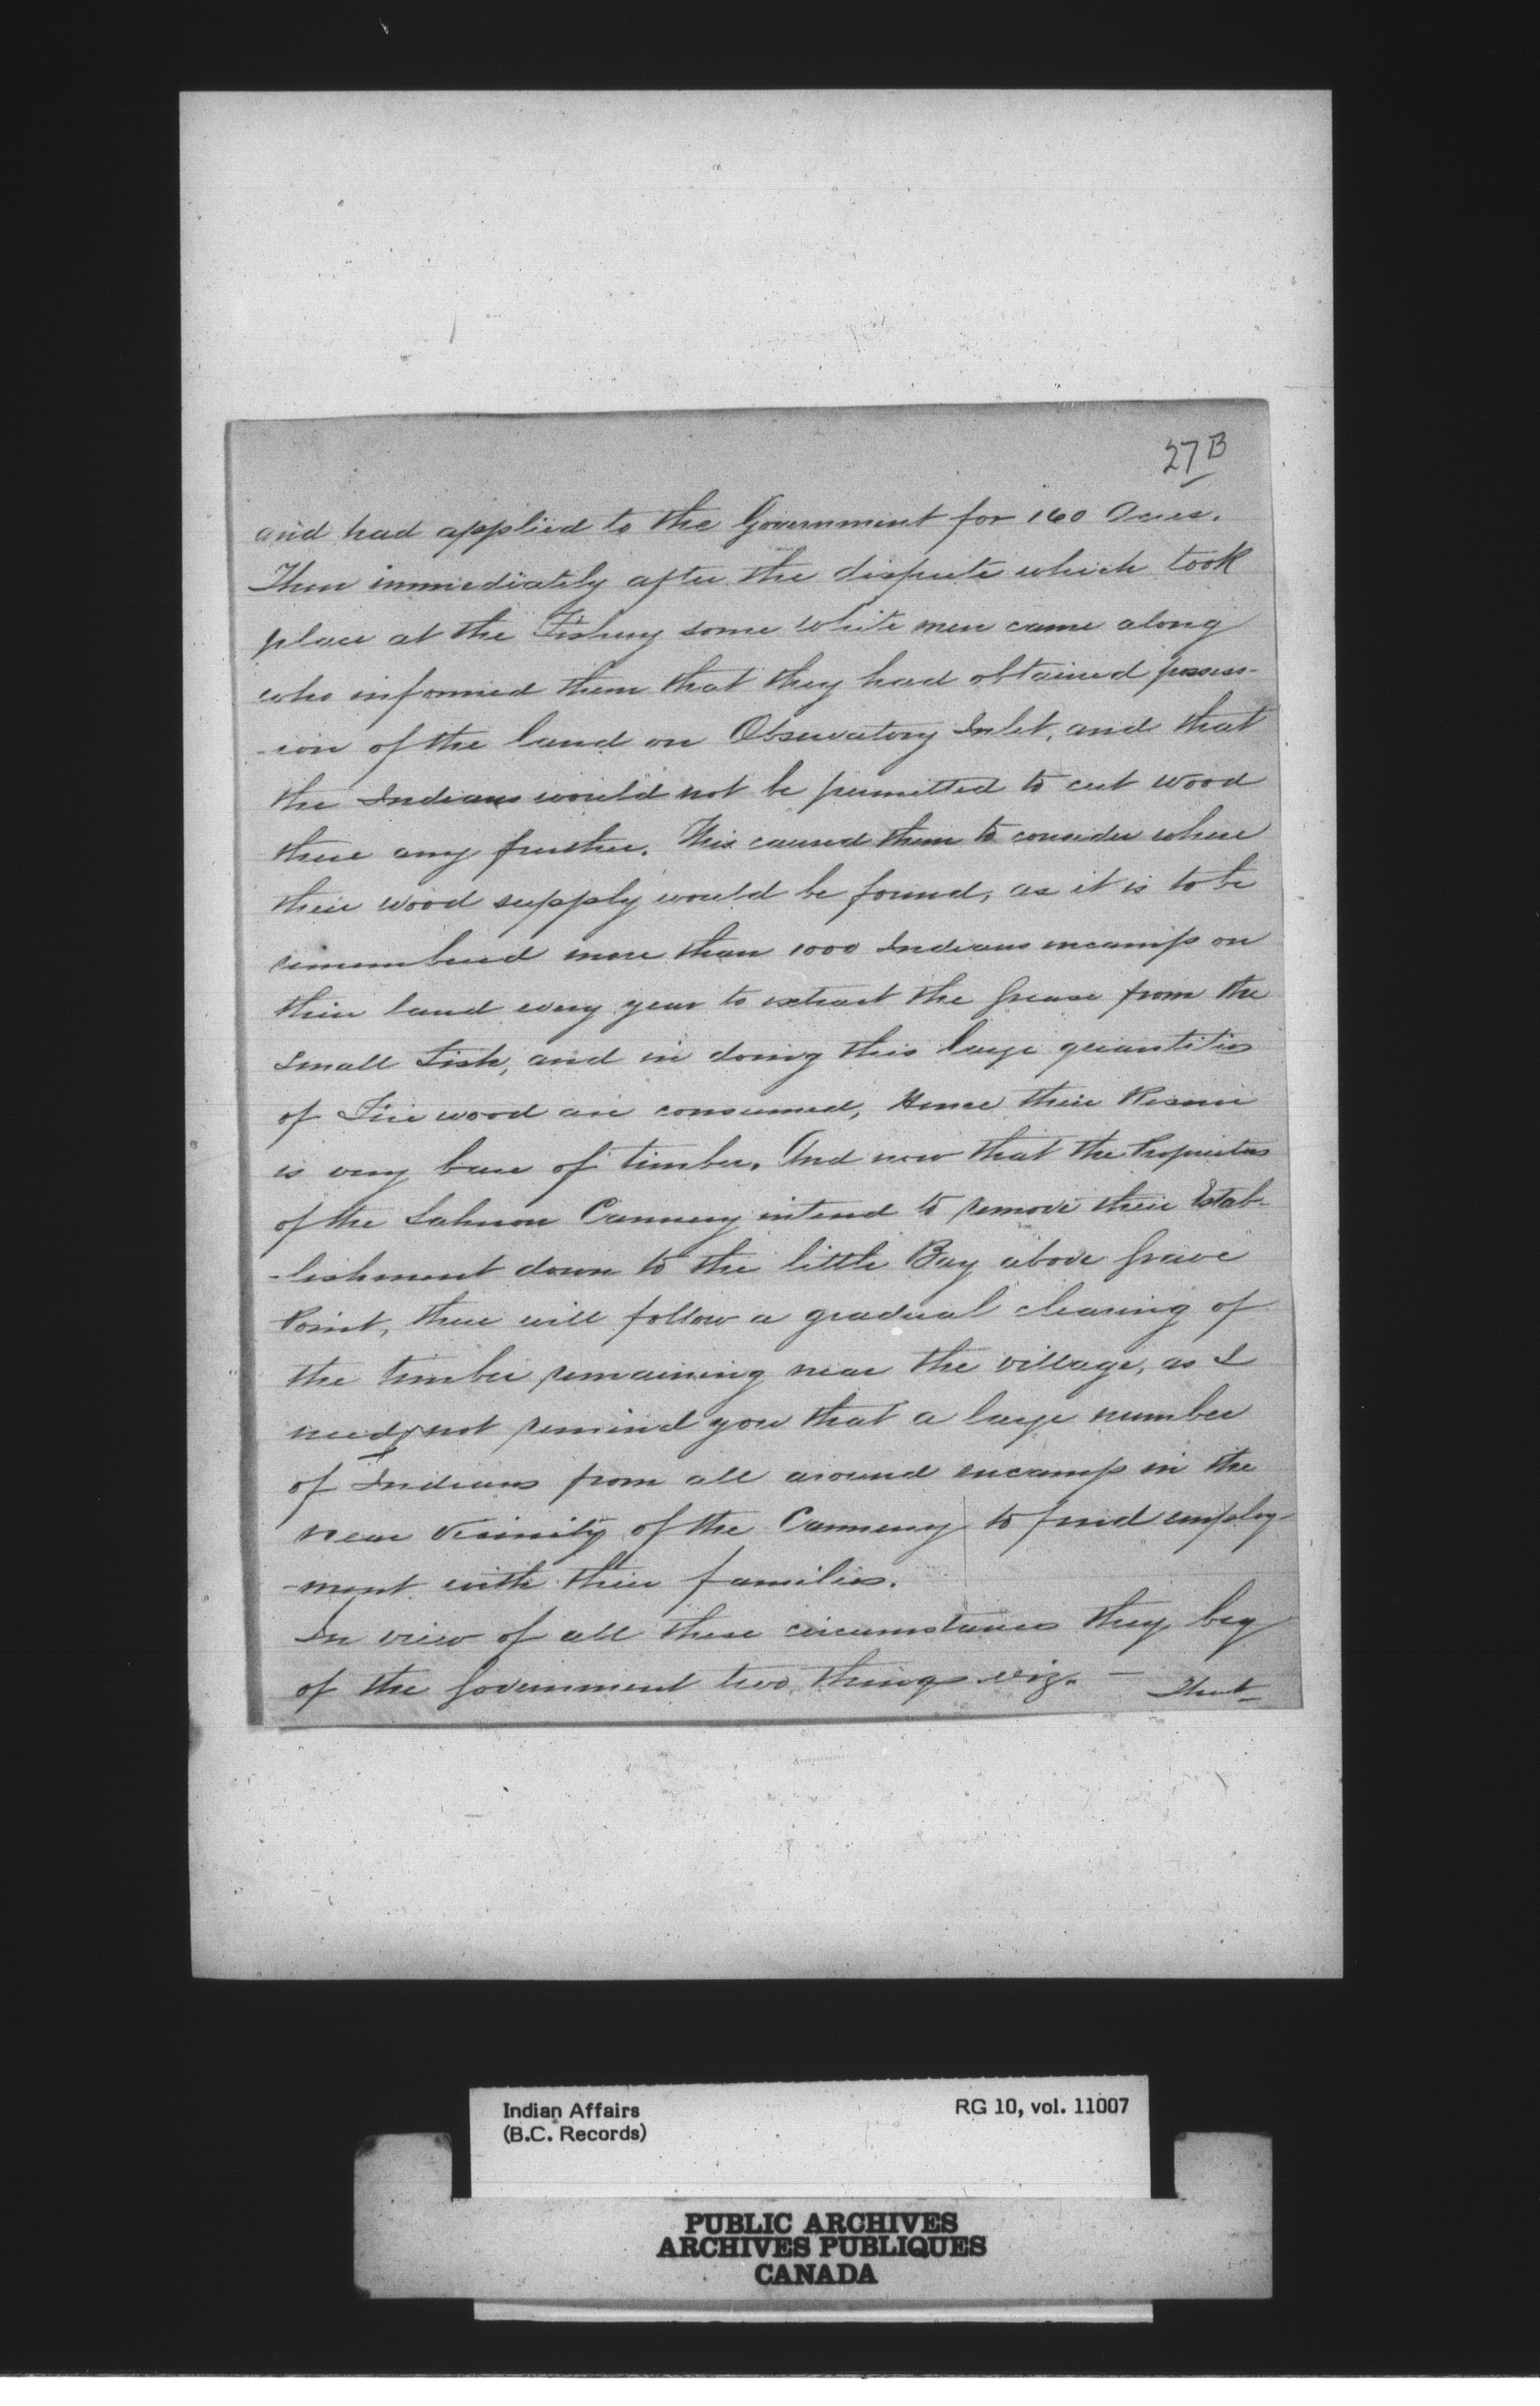 27 B
and had applied to the Government for 160 Acres.
Then immediately after the dispute which took
place at the Fishery some white men came along
who informed them that they had obtained possess-
-ion of the land on Observatory Inlet, and that
the Indians would not be permitted to cut wood
there any further. This caused them to consider where
their wood supply would be found, as it is to be
remembered more than 1000 Indians encamp on
their land every year to extract the grease from the
small Fish, and in doing this large quantities
of Fire wood are consumed, Hence their Reserve
is very bare of timber. And now that the Proprietors
of the Salmon Cannery intend to remove their Estab-
-lishment down to the little Bay above Grave
Point, there will follow a gradual clearing of
the timber remaining near the village, as I
need not remind you that a large number
of Indians from all around encamp in the
near vicinity of the Cannery to find employ-
-ment with their families.
In view of all these circumstances they beg
of the Government two things viz. — That
Indian Affairs RG 10, vol. 11007
(B.C. Records)
PUBLIC ARCHIVES
ARCHIVES PUBLIQUES
CANADA